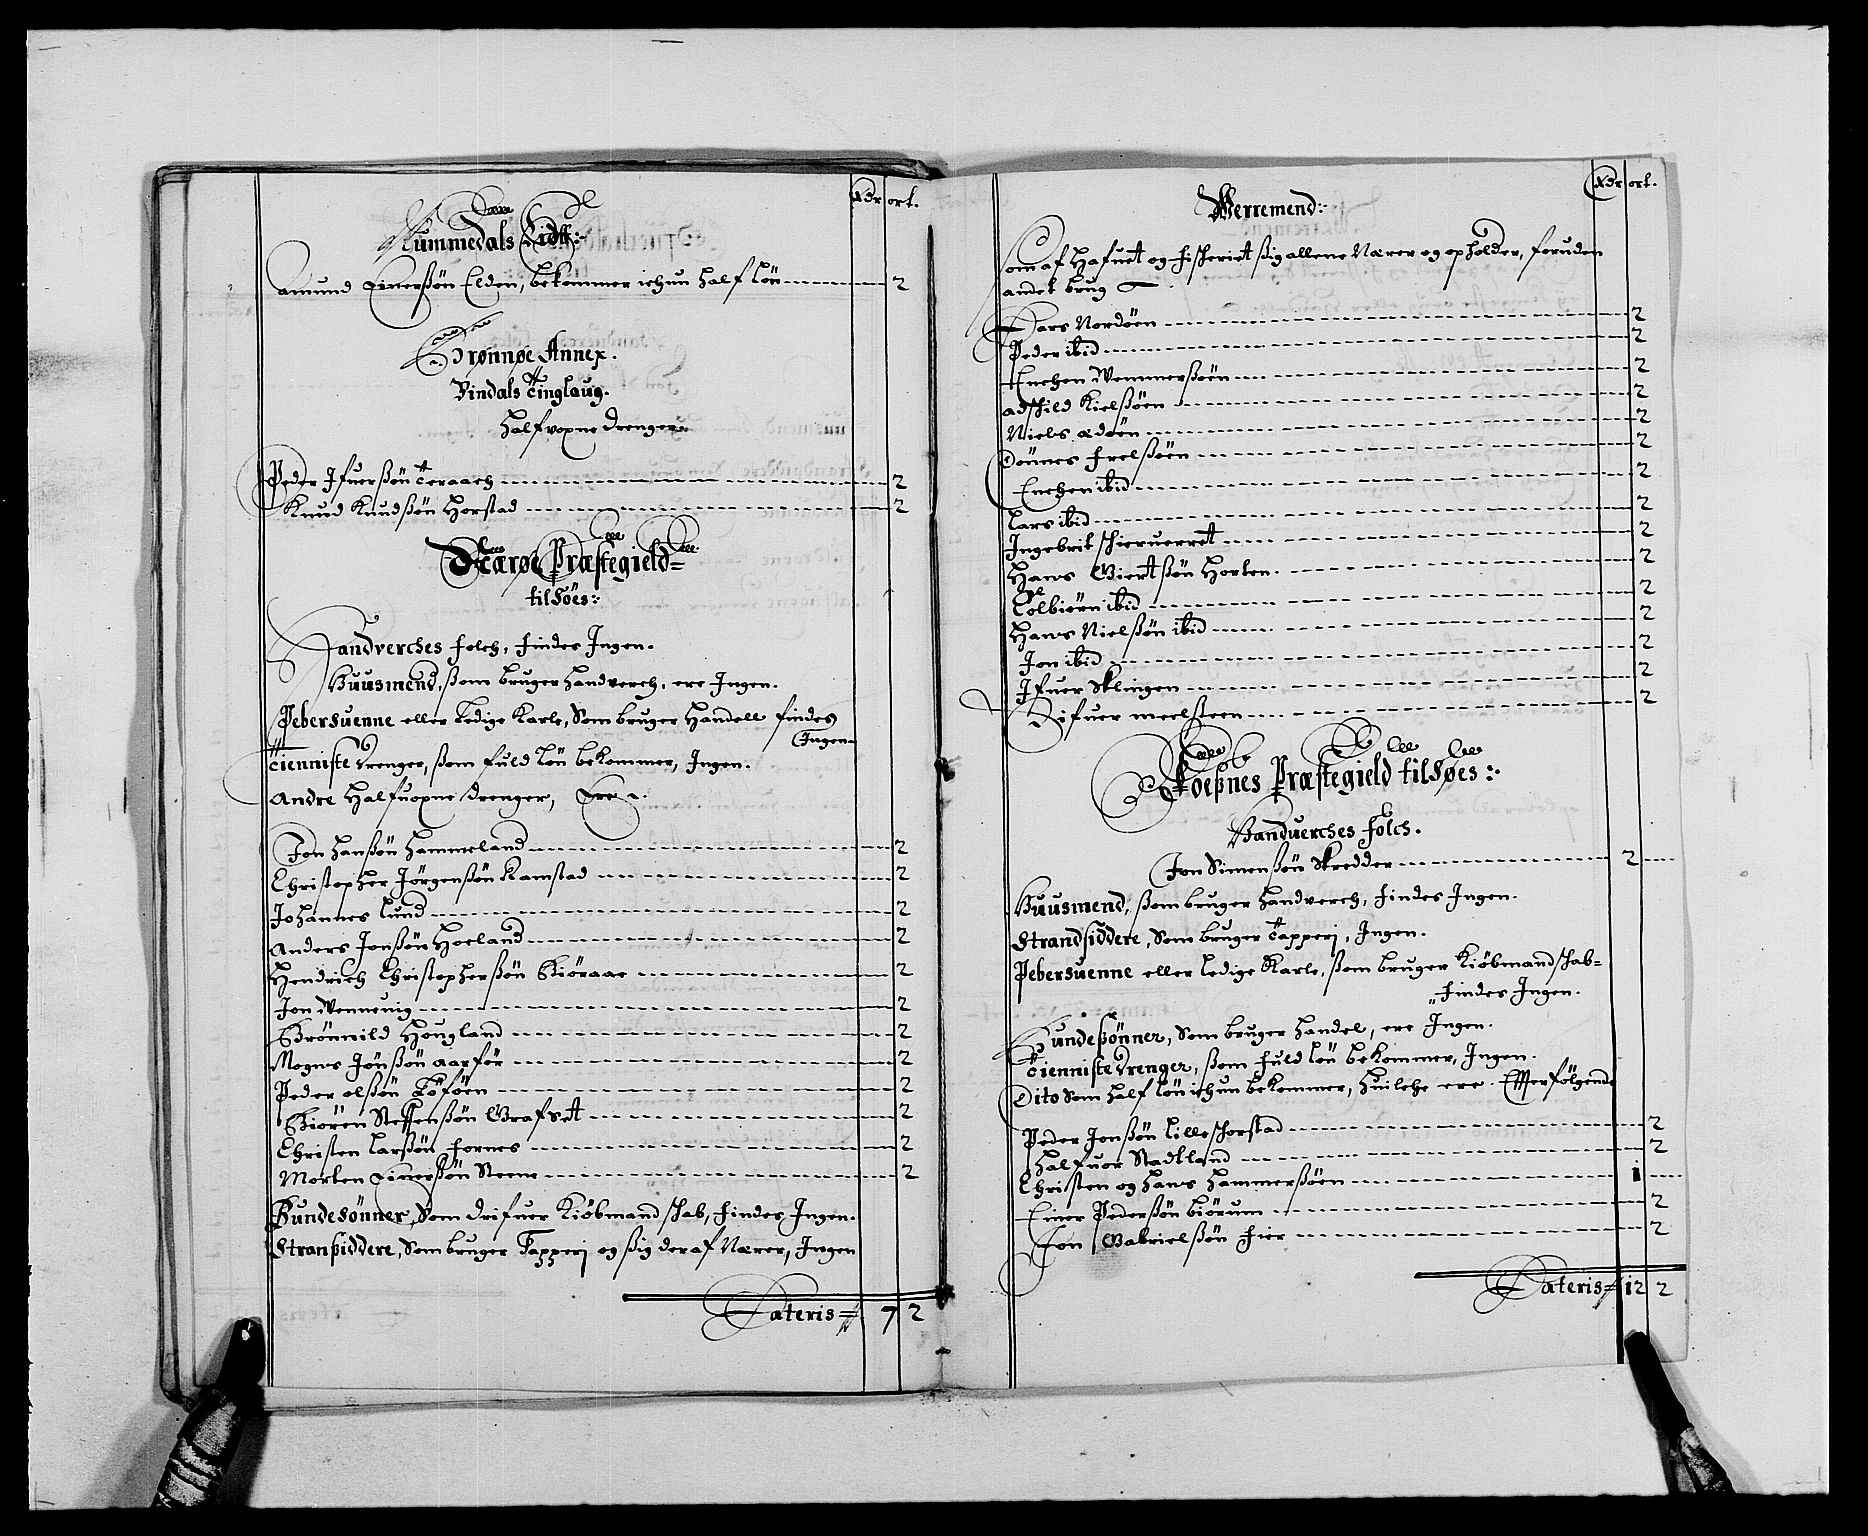 Rdr ort.
Nummedals Eidtt:
Amund Einerßøn Elden, bekommer ichun half løn 2
Brønnøe Annex.
Vindals Tinglaug.
Halfvoxne drenger
Peder Ifuerßøn Teraach 2
Knud Knudßøn Horstad 2
Nærøe Præstegield
til Søes:
Handverches folch, findes Ingen.
Huusmend, ßom bruger handverch, ere Ingen.
Pebersuenne eller Ledige Karle, Som bruger Handell findes
Ingen
Tienniste drenger, ßom fuld løn bekommer, Ingen.
Andre Halfuoxne drenger, Ere
Jon Hanßøn Hammeland 2
Christopher Jørgenßøn Ramstad 2
Johannes Lund 2
Anders Jonßøn Hoeland 2
Hendrich Christopherßøn Kiøraae 2
Jon Wennevig 2
Brønnild Hougland 2
Mogns Jonßøn Aarfør 2
Peder Olßøn Tøføen 2
Biøren Steffenßøn Grafset 2
Christen Larßøn Fornes 2
Morten Einerßøn Steene 2
Bundesønner, Som drifuer Kiøbmandschab, findes Ingen.
Stranßiddere, Som bruger Tapperj og ßig deraf Nærer, Ingen
Lateris 7 2
Rdr ort.
Werremend:
Som af Hafuet og fischeriet ßig allene Nærer og opholder, foruden
andet brug
Lars Nordøen 2
Peder ibid 2
Enchen Wemmerßøen 2
Adschild Kielßøen 2
Niels Ædøen 2
Dønnes Frelßøen 2
Enchen ibid 2
Lars ibid 2
Ingebrit Schieruerret 2
Hans Giertßøn Horten 2
Tolbiørn ibid 2
Hans Nielßøn ibid 2
Jon ibid 2
Ifuer Sklingen 2
Sifuer Meelsteen 2
Foeßnes Præstegield til Søes:
Handuerches folch.
Jon Simenßøn Skredder 2
Huusmend, ßom bruger handverch, findes Ingen.
Strandsiddere, Som bruger Tapperj, Ingen.
Pebersuenne eller Ledige Karle, ßom bruger Kiøbmandschab
findes Ingen.
Bundeßønner, Som bruger handel, ere Ingen.
Tienniste drenger, ßom fuld løn bekommer, Ingen.
Dito Som half løn ichun bekommer, huilche ere Efterfølgende
Peder Jonßøn Lilleschorstad 2
Halfuor Stadtland 2
Christen og Hans Hammerßøen 1
Einer Pederßøn Biørum 2
Jon Gabrielßøn Fier 2
Lateris 12 2